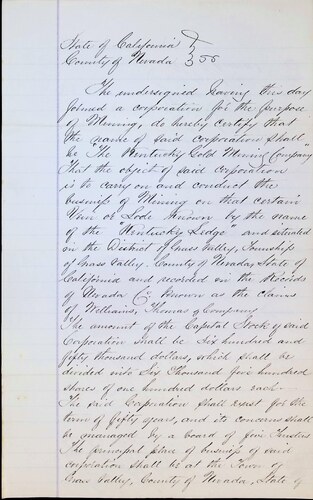 State of California }
County of Nevada } ss
The undersigned having this day
formed a corporation for the purpose
of Mining, do hereby certify that
the name of said corporation shall
be "The Kentucky Gold Mining Company"
That the object of said corporation
is to carry on and conduct the
business of Mining on that certain
Vein or Lode known by the name
of the "Kentucky Ledge" and situated
in the District of Grass Valley, Township
of Grass Valley, County of Nevada, State of
California and recorded in the Records
of Nevada Co. known as the claims
of Williams, Thomas & Company
The amount of the Capital Stock of said
Corporation shall be Six hundred and
fifty thousand dollars, which shall be
divided into Six Thousand five hundred
shares of one hundred dollars each
The said Corporation shall exist for the
term of fifty years, and its concerns shall
be managed by a board of five Trustees
The principal place of business of said
corporation shall be at the Town of
Grass Valley, County of Nevada, State of